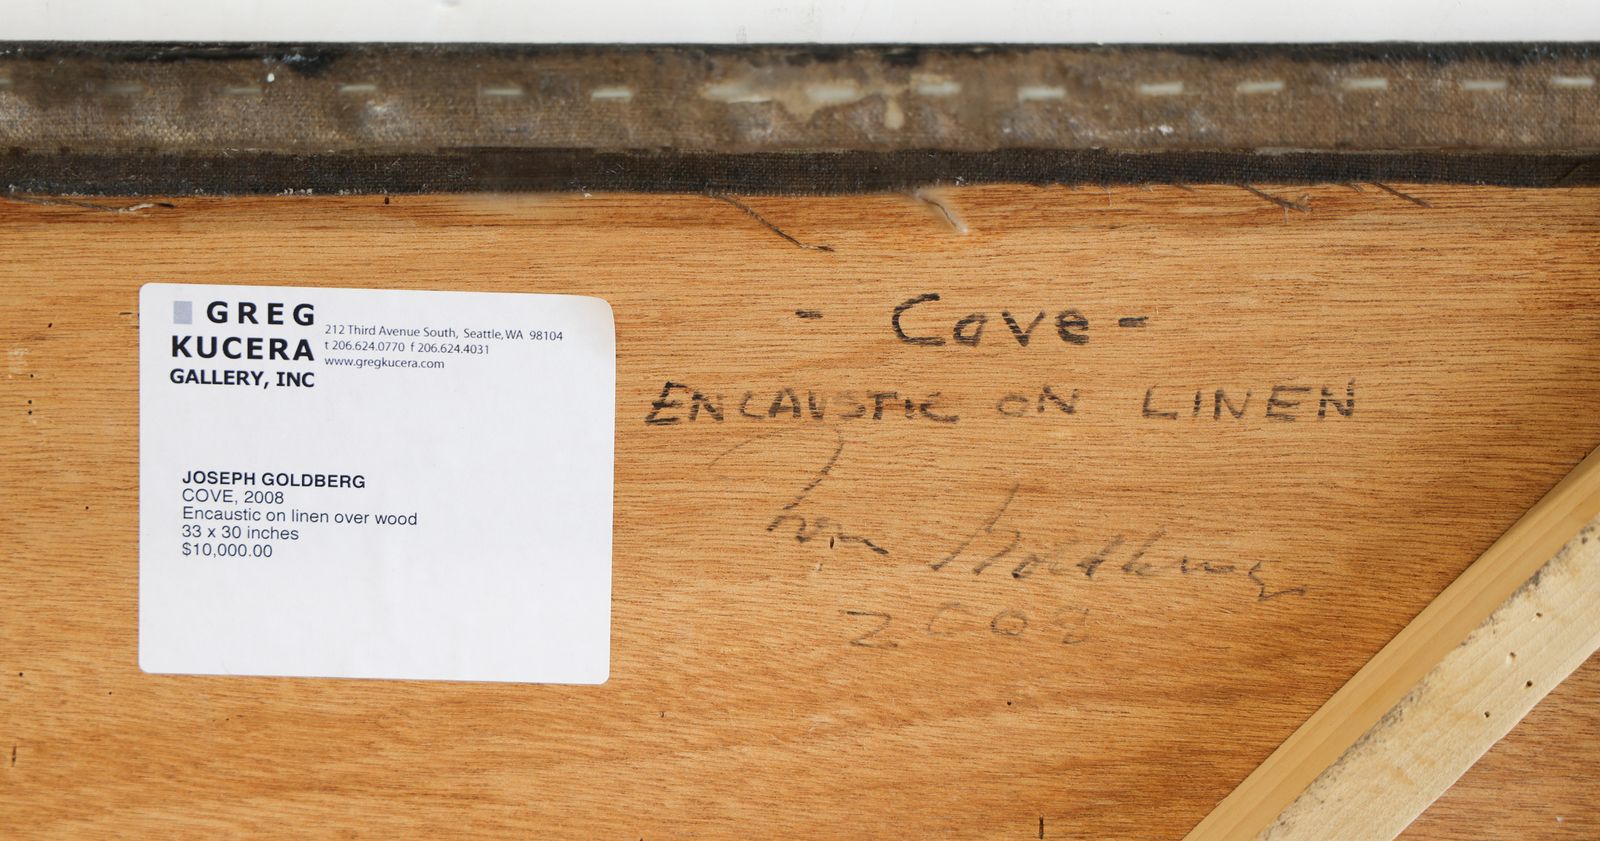 GREG
KUCERA
GALLERY, INC
212 Third Avenue South, Seattle, WA 98104
t 206.624.0770 f 206.624.4031
www.gregkucera.com
JOSEPH GOLDBERG
COVE, 2008
Encaustic on linen over wood
33 x 30 inches
$10,000.00
- Cove -
ENCAUSTIC ON LINEN
Goldberg
2008